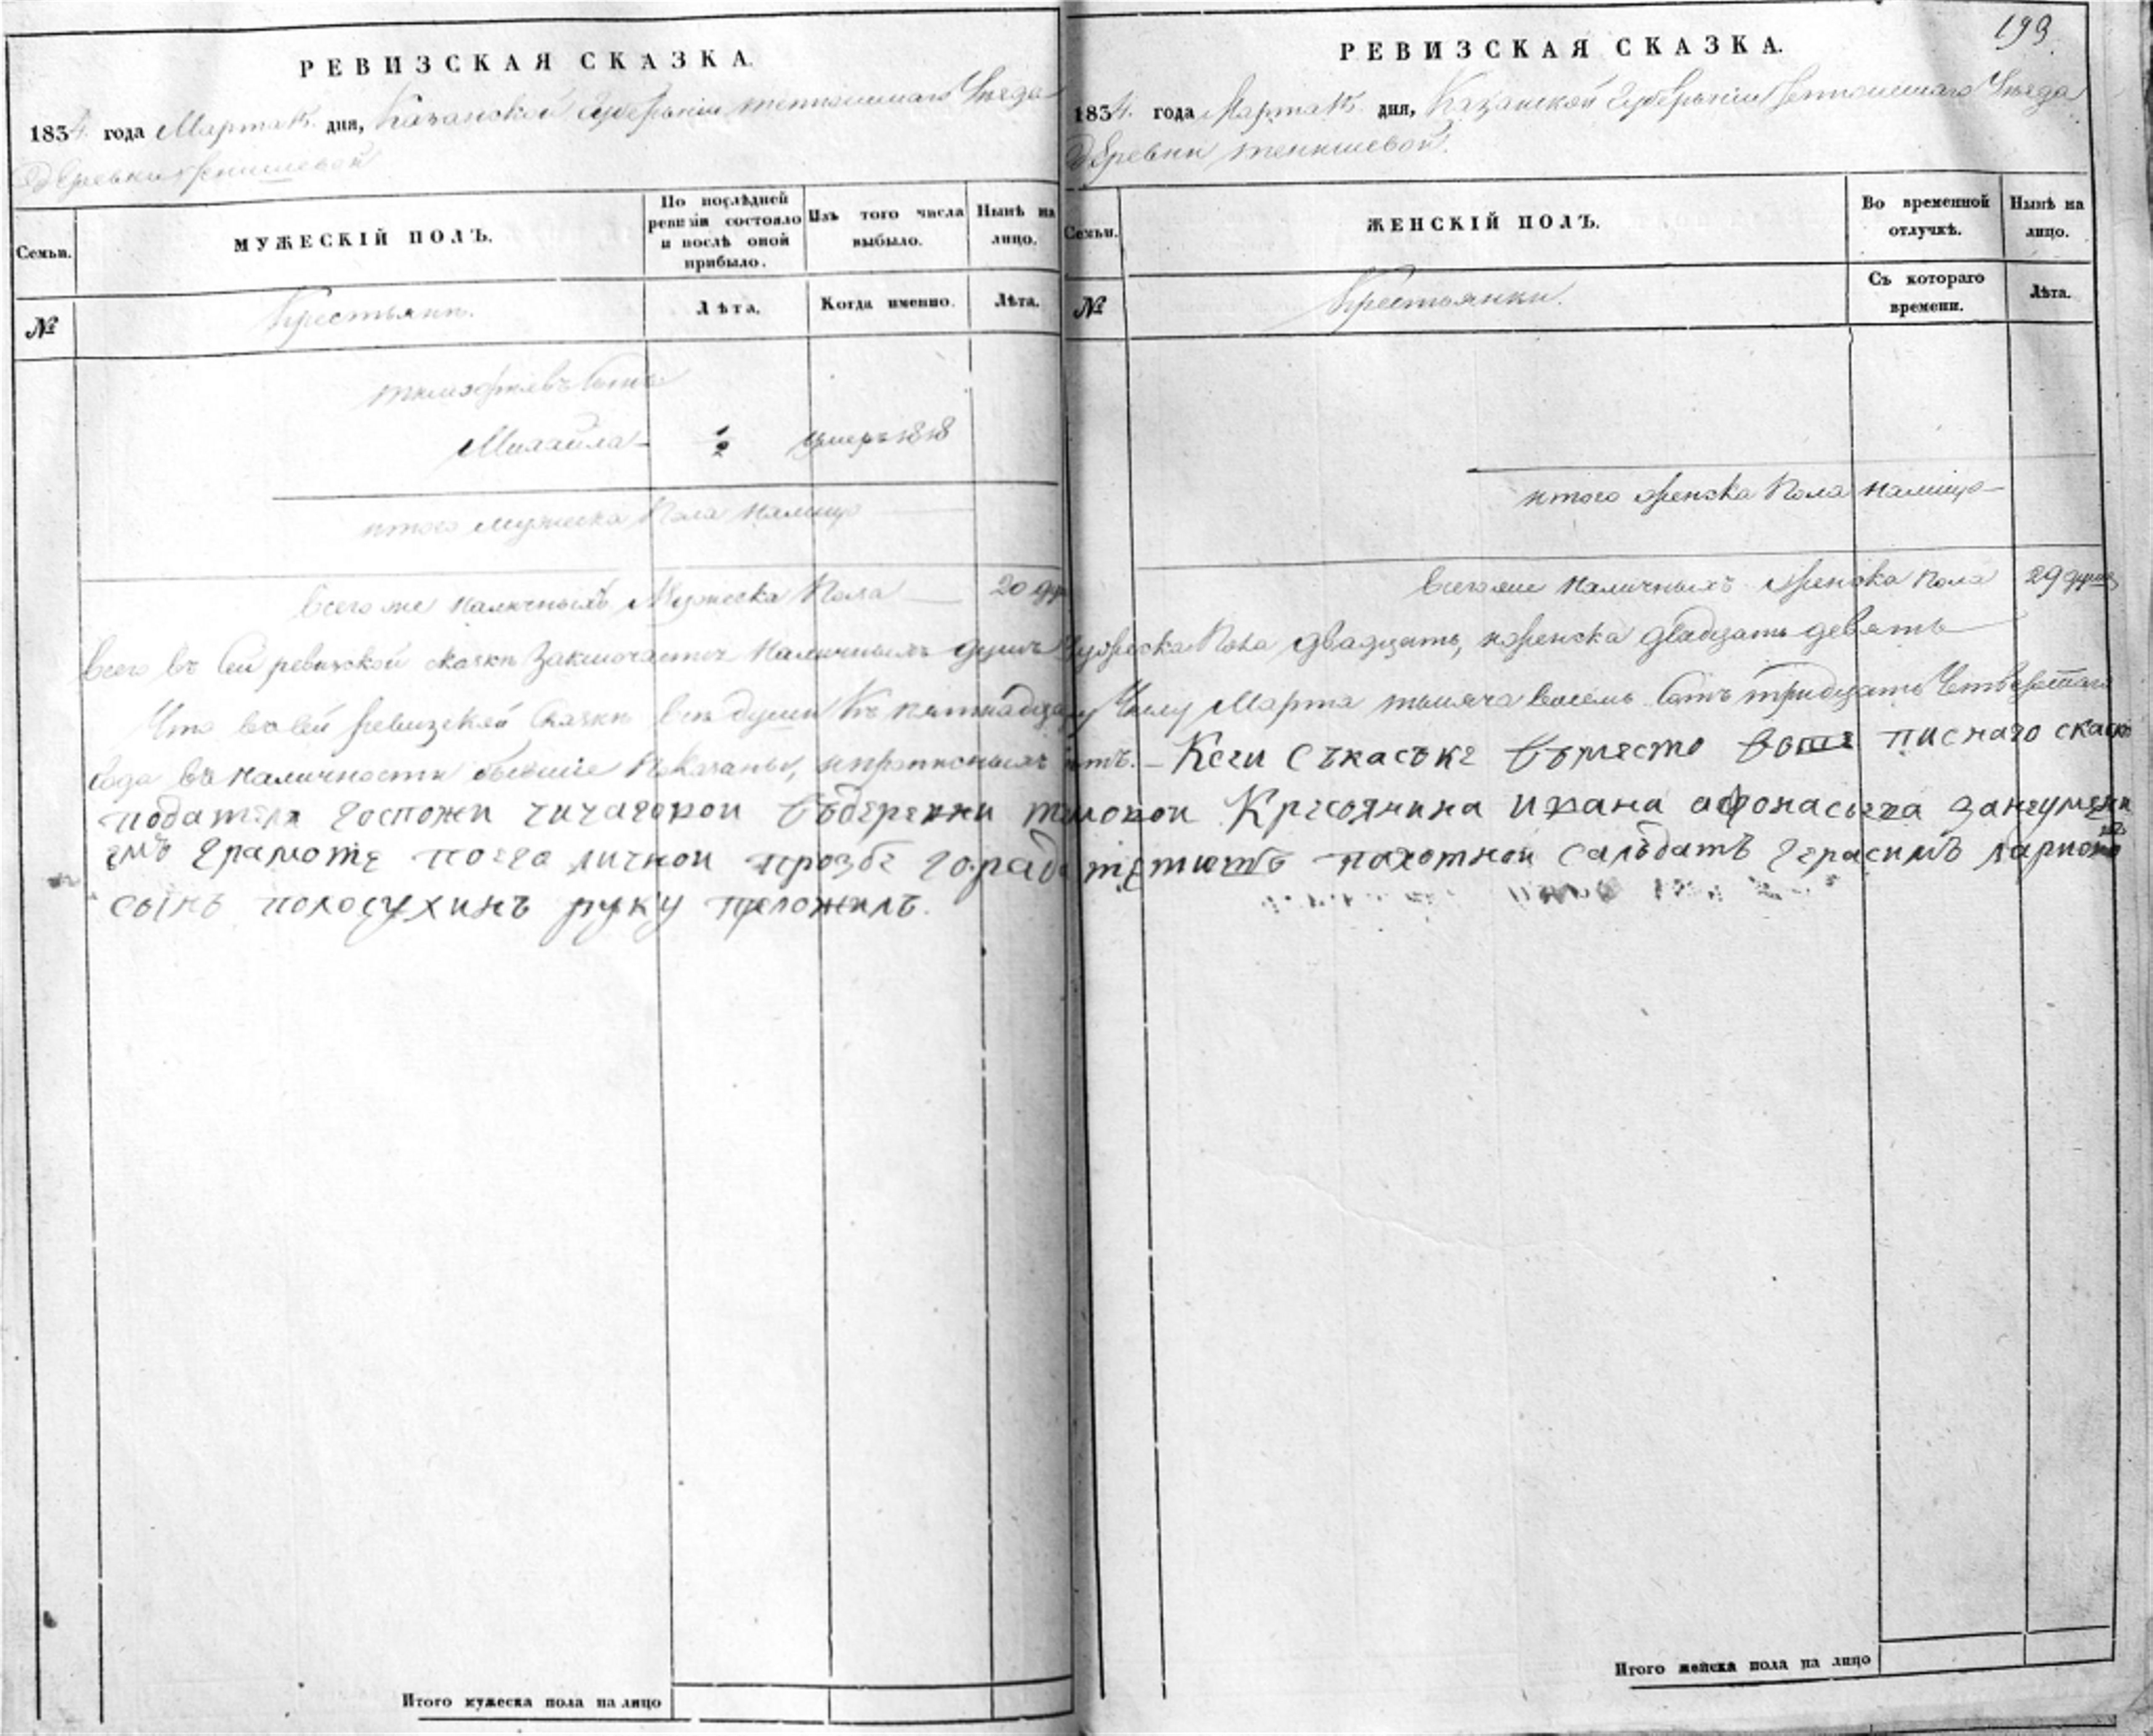 193.
РЕВИЗСКАЯ СКАЗКА.
1834. года Марта 15. дня, Казанской Губерніи тетюшскаго Уѣзда
деревни тенишевой
Семьи.
МУЖЕСКІЙ ПОЛЪ.
По послѣдней ревизіи состояло и послѣ оной прибыло.
Изъ того числа выбыло.
Нынѣ на лицо.
№
Крестьяне.
Лѣта.
Когда именно.
Лѣта.
сынъ
Михайла
умеръ 1818
итого мужеска пола налицо
Всего же наличныхъ Мужеска пола 20 ду
РЕВИЗСКАЯ СКАЗКА.
1834. года Марта 15. дня, Казанской Губерніи тетюшскаго Уѣзда
деревни тенишевой.
Семьи.
ЖЕНСКІЙ ПОЛЪ.
Во временной отлучкѣ.
Нынѣ на лицо.
№
Крестьянки.
Съ котораго времени.
Лѣта.
итого женска пола налицо
Всего же наличныхъ женска пола 29 душъ
Всего въ сей ревизской сказкѣ заключается наличныхъ душъ мужеска пола двадцать, женска двадцать девять
Что въ сей ревизской сказкѣ всѣ души къ пятнадцатому Числу Марта тысяча восемь сотъ тридцать Четвертаго
года въ наличности бывшіе показаны, и прописныхъ нѣтъ. - Ксеи съкаське въместо писнаго
подателя госпожи чичаговои въдеревни Кресоянина ивана афонасьева
грамоте поего личнои прозбе тетюшъ пахотнои салъдатъ герасимъ
сынъ полосухинъ руку преложилъ.
Итого мужеска пола на лицо
Итого женска пола на лицо